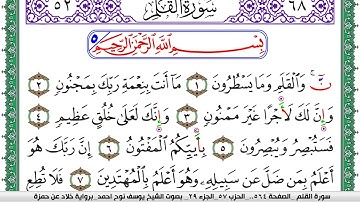 ٥٢ سُورَةُ القَلَمِ ٦٨
بِسْمِ اللَّهِ الرَّحْمَٰنِ الرَّحِيمِ
نٓ ۚ وَالْقَلَمِ وَمَا يَسْطُرُونَ ١ مَا أَنتَ بِنِعْمَةِ رَبِّكَ بِمَجْنُونٍ ٢
وَإِنَّ لَكَ لَأَجْرًا غَيْرَ مَمْنُونٍ ٣ وَإِنَّكَ لَعَلَىٰ خُلُقٍ عَظِيمٍ ٤
فَسَتُبْصِرُ وَيُبْصِرُونَ ٥ بِأَييِّكُمُ الْمَفْتُونُ ٦ إِنَّ رَبَّكَ هُوَ
أَعْلَمُ بِمَن ضَلَّ عَن سَبِيلِهِ وَهُوَ أَعْلَمُ بِالْمُهْتَدِينَ ٧ فَلَا تُطِعِ
سورة القلم _الصفحة ٥٦٤_ الحزب ٥٧_الجزء ٢٩_ بصوت الشيخ يوسف نوح احمد _برواية خلاد عن حمزة